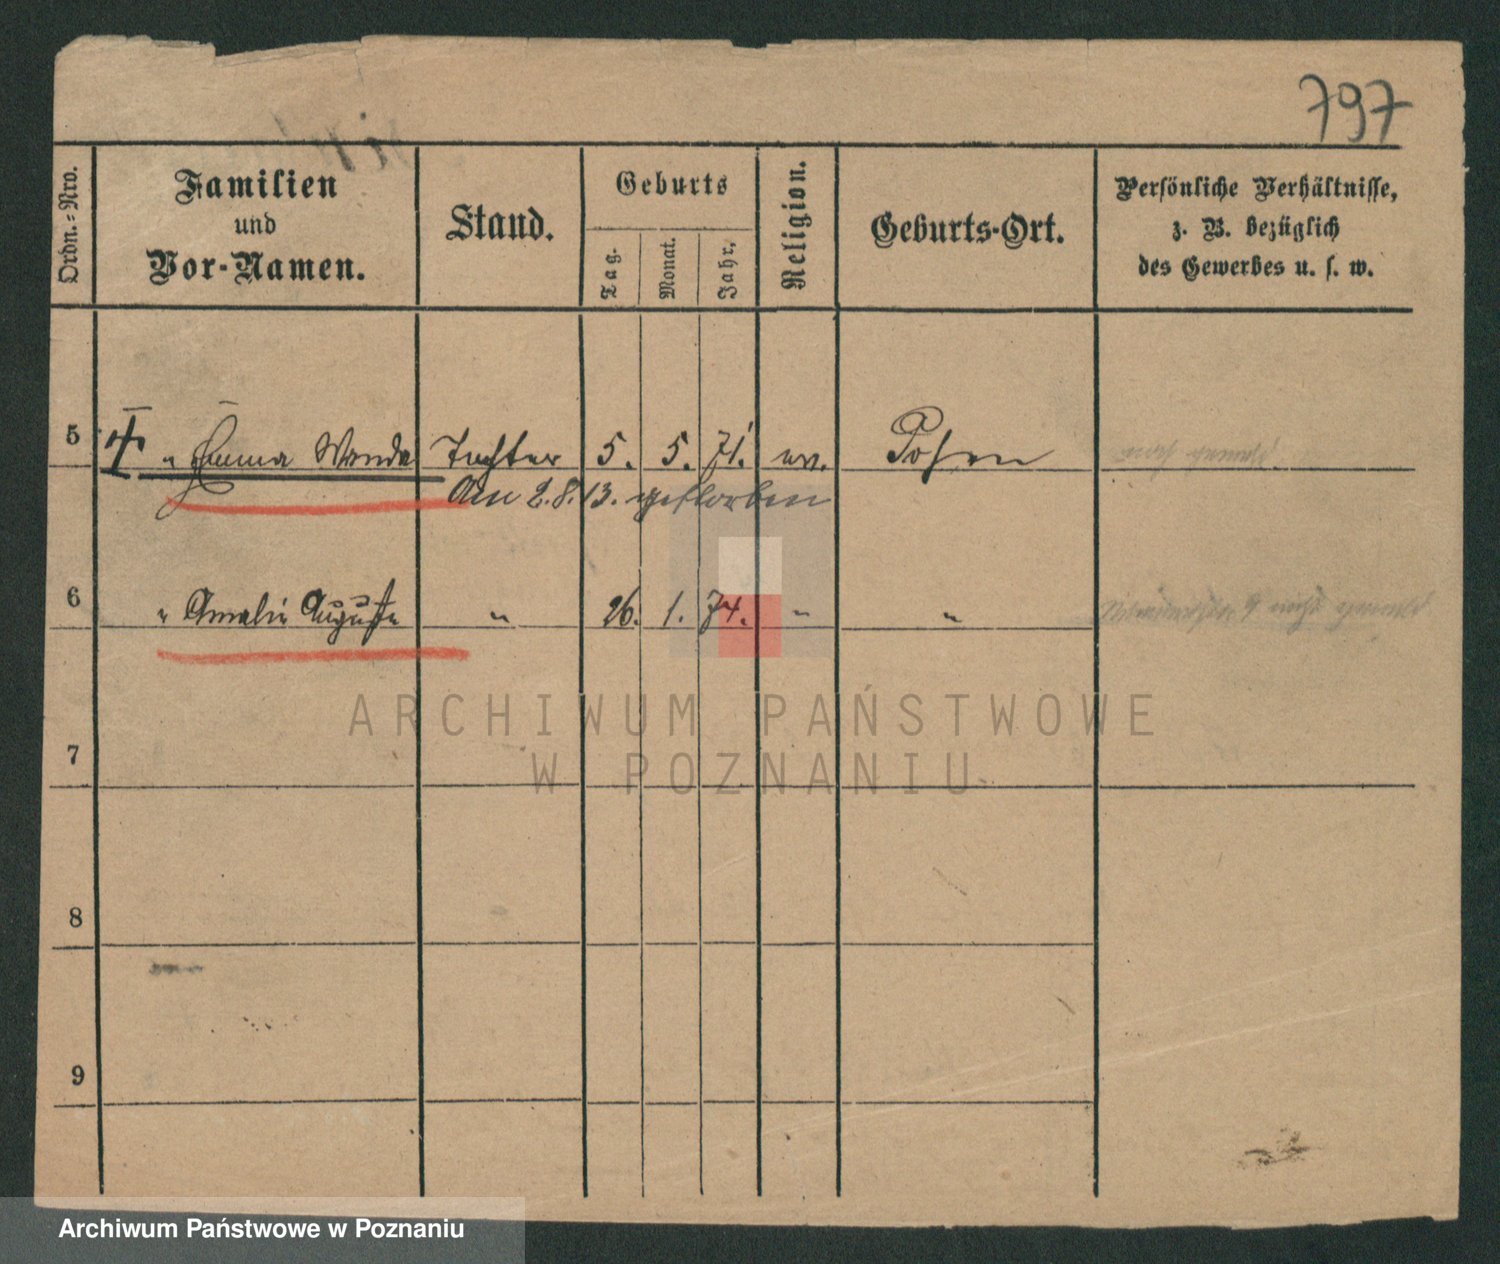 797
Ordn.-Nro.
Familien
und
Vor-Namen.
Stand.
Geburts
Tag.
Monat.
Jahr.
Religion.
Geburts-Ort.
Persönliche Verhältnisse,
z. B. bezüglich
des Gewerbes u. s. w.
5 " Emma Wanda Tochter 5. 5. 71. ev. Posen
Am 2.8.13. gestorben
6 " Amalie Auguste " 26. 1. 74. " "
7
8
9
ARCHIWUM PAŃSTWOWE
W POZNANIU
Archiwum Państwowe w Poznaniu